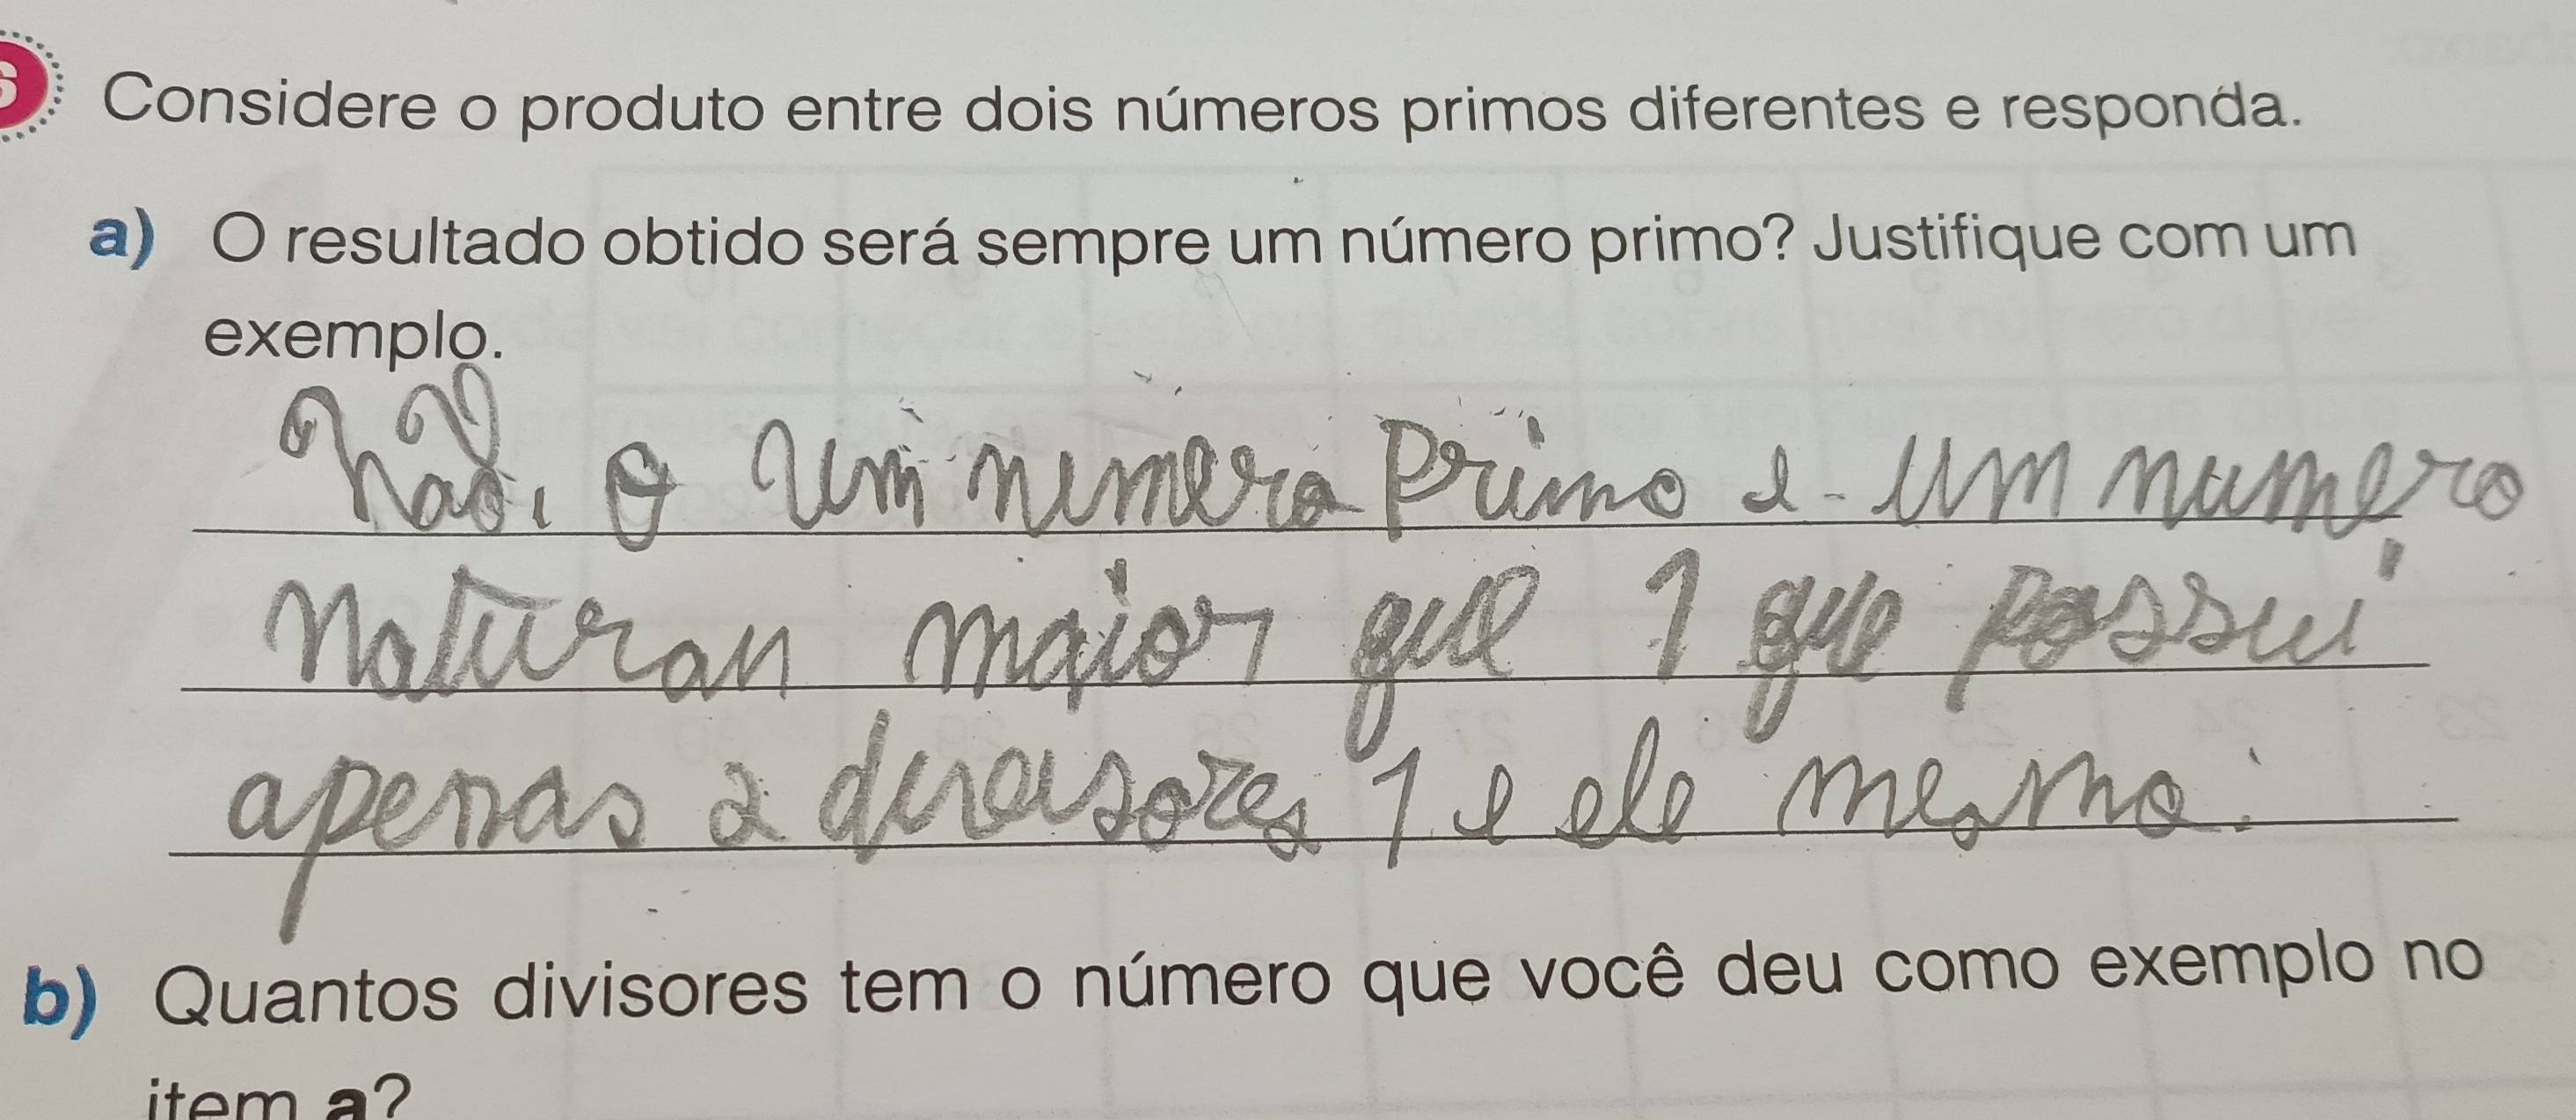 Considere o produto entre dois números primos diferentes e responda.
a) O resultado obtido será sempre um número primo? Justifique com um
exemplo.
Não, um numero Primo e um numero
naturan maior que 1 que possui
apenas 2 divisores 1 e ele mesmo.
b) Quantos divisores tem o número que você deu como exemplo no
item a?